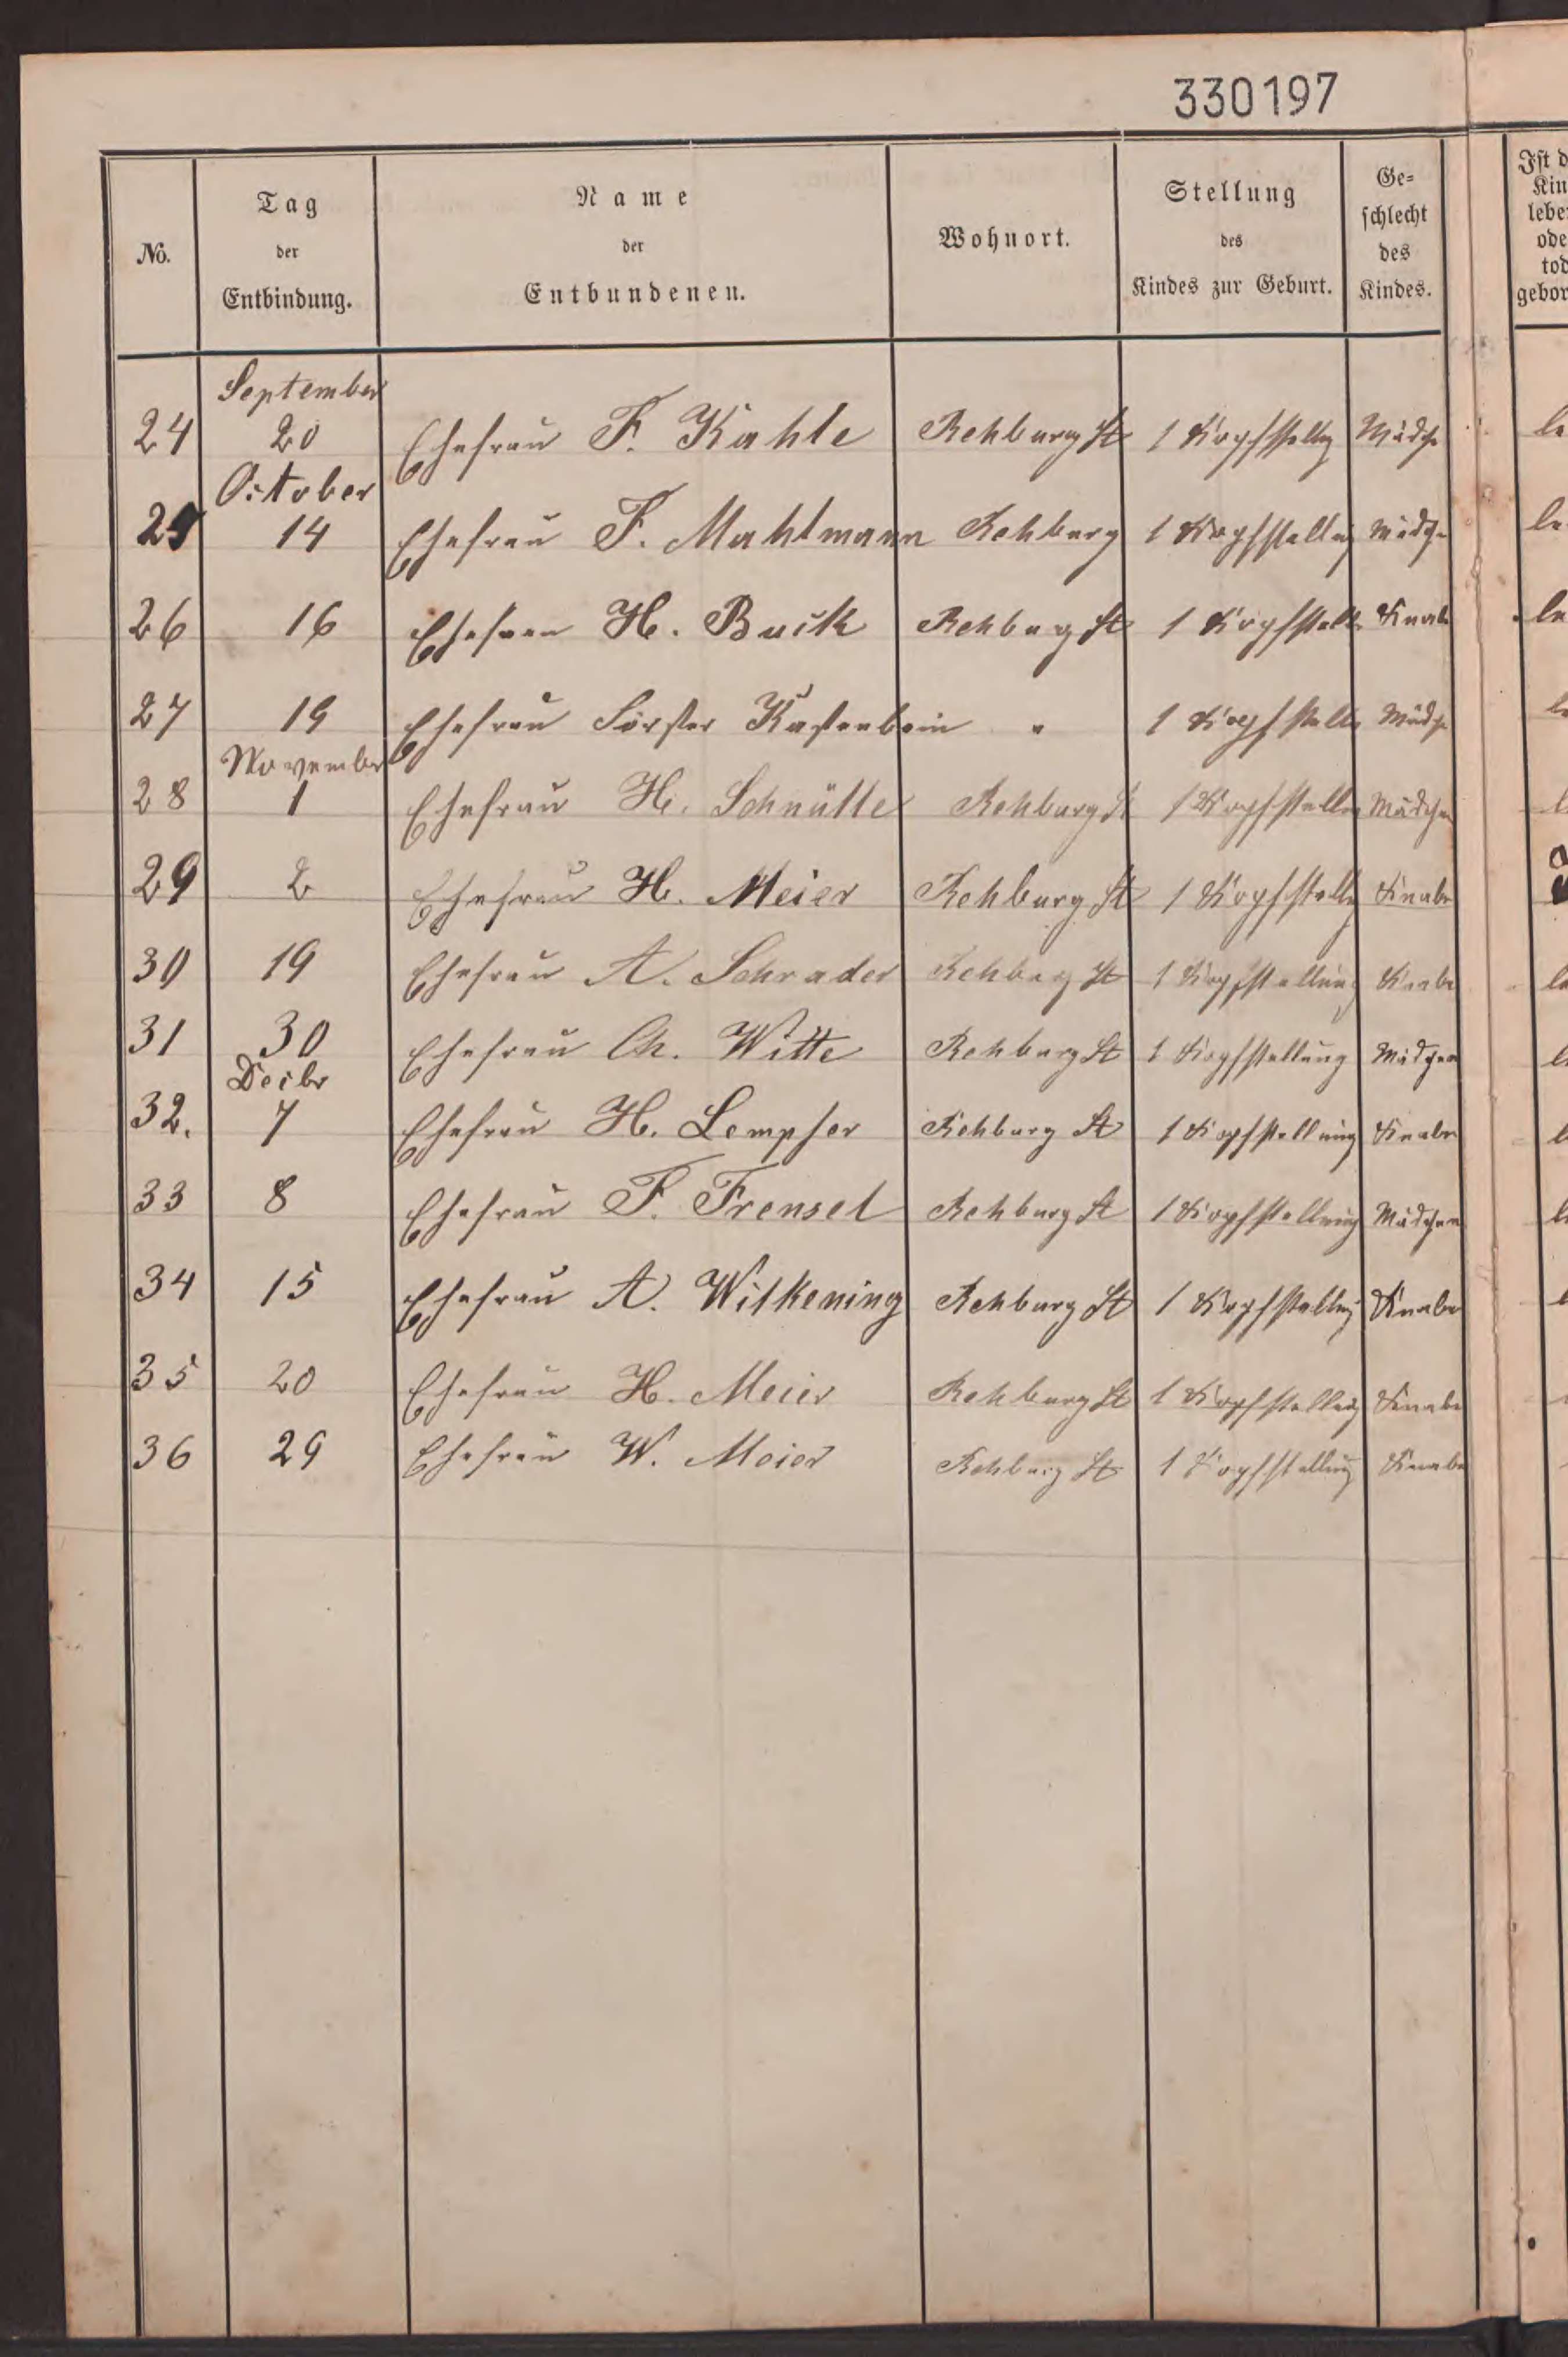 330197
No. Tag der Entbindung. Name der Entbundenen. Wohnort. Stellung des Kindes zur Geburt. Ge-schlecht des Kindes.
September
24 20 Ehefrau F. Kahle Rehburg St 1 Kopfstellg Mädch
October
25 14 Ehefrau F. Mahlmann Rehburg 1 Kopfstellung Mädche
26 16 Ehefrau H. Buck Rehburg St 1 Kopfstell Knabe
27 19 Ehefrau Förster Kastenbein " 1 Kopfstellg Mädch
November
28 1 Ehefrau H. Schnülle Rehburg St 1 Kopfstellg Mädchen
29 2 Ehefrau H. Meier Rehburg St 1 Kopfstellg Knabe
30 19 Ehefrau A. Schrader Rehburg St 1 Kopfstellung Knabe
31 30 Ehefrau Ch. Witte Rehburg St 1 Kopfstellung Mädchen
Decbr
32. 7 Ehefrau H. Lempfer Rehburg St 1 Kopfstellung Knabe
33 8 Ehefrau F. Frensel Rehburg St 1 Kopfstellung Mädchen
34 15 Ehefrau A. Wilkening Rehburg St 1 Kopfstellg Knabe
35 20 Ehefrau H. Meier Rehburg St 1 Kopfstellung Knabe
36 29 Ehefrau W. Meier Rehburg St 1 Kopfstellung Knabe